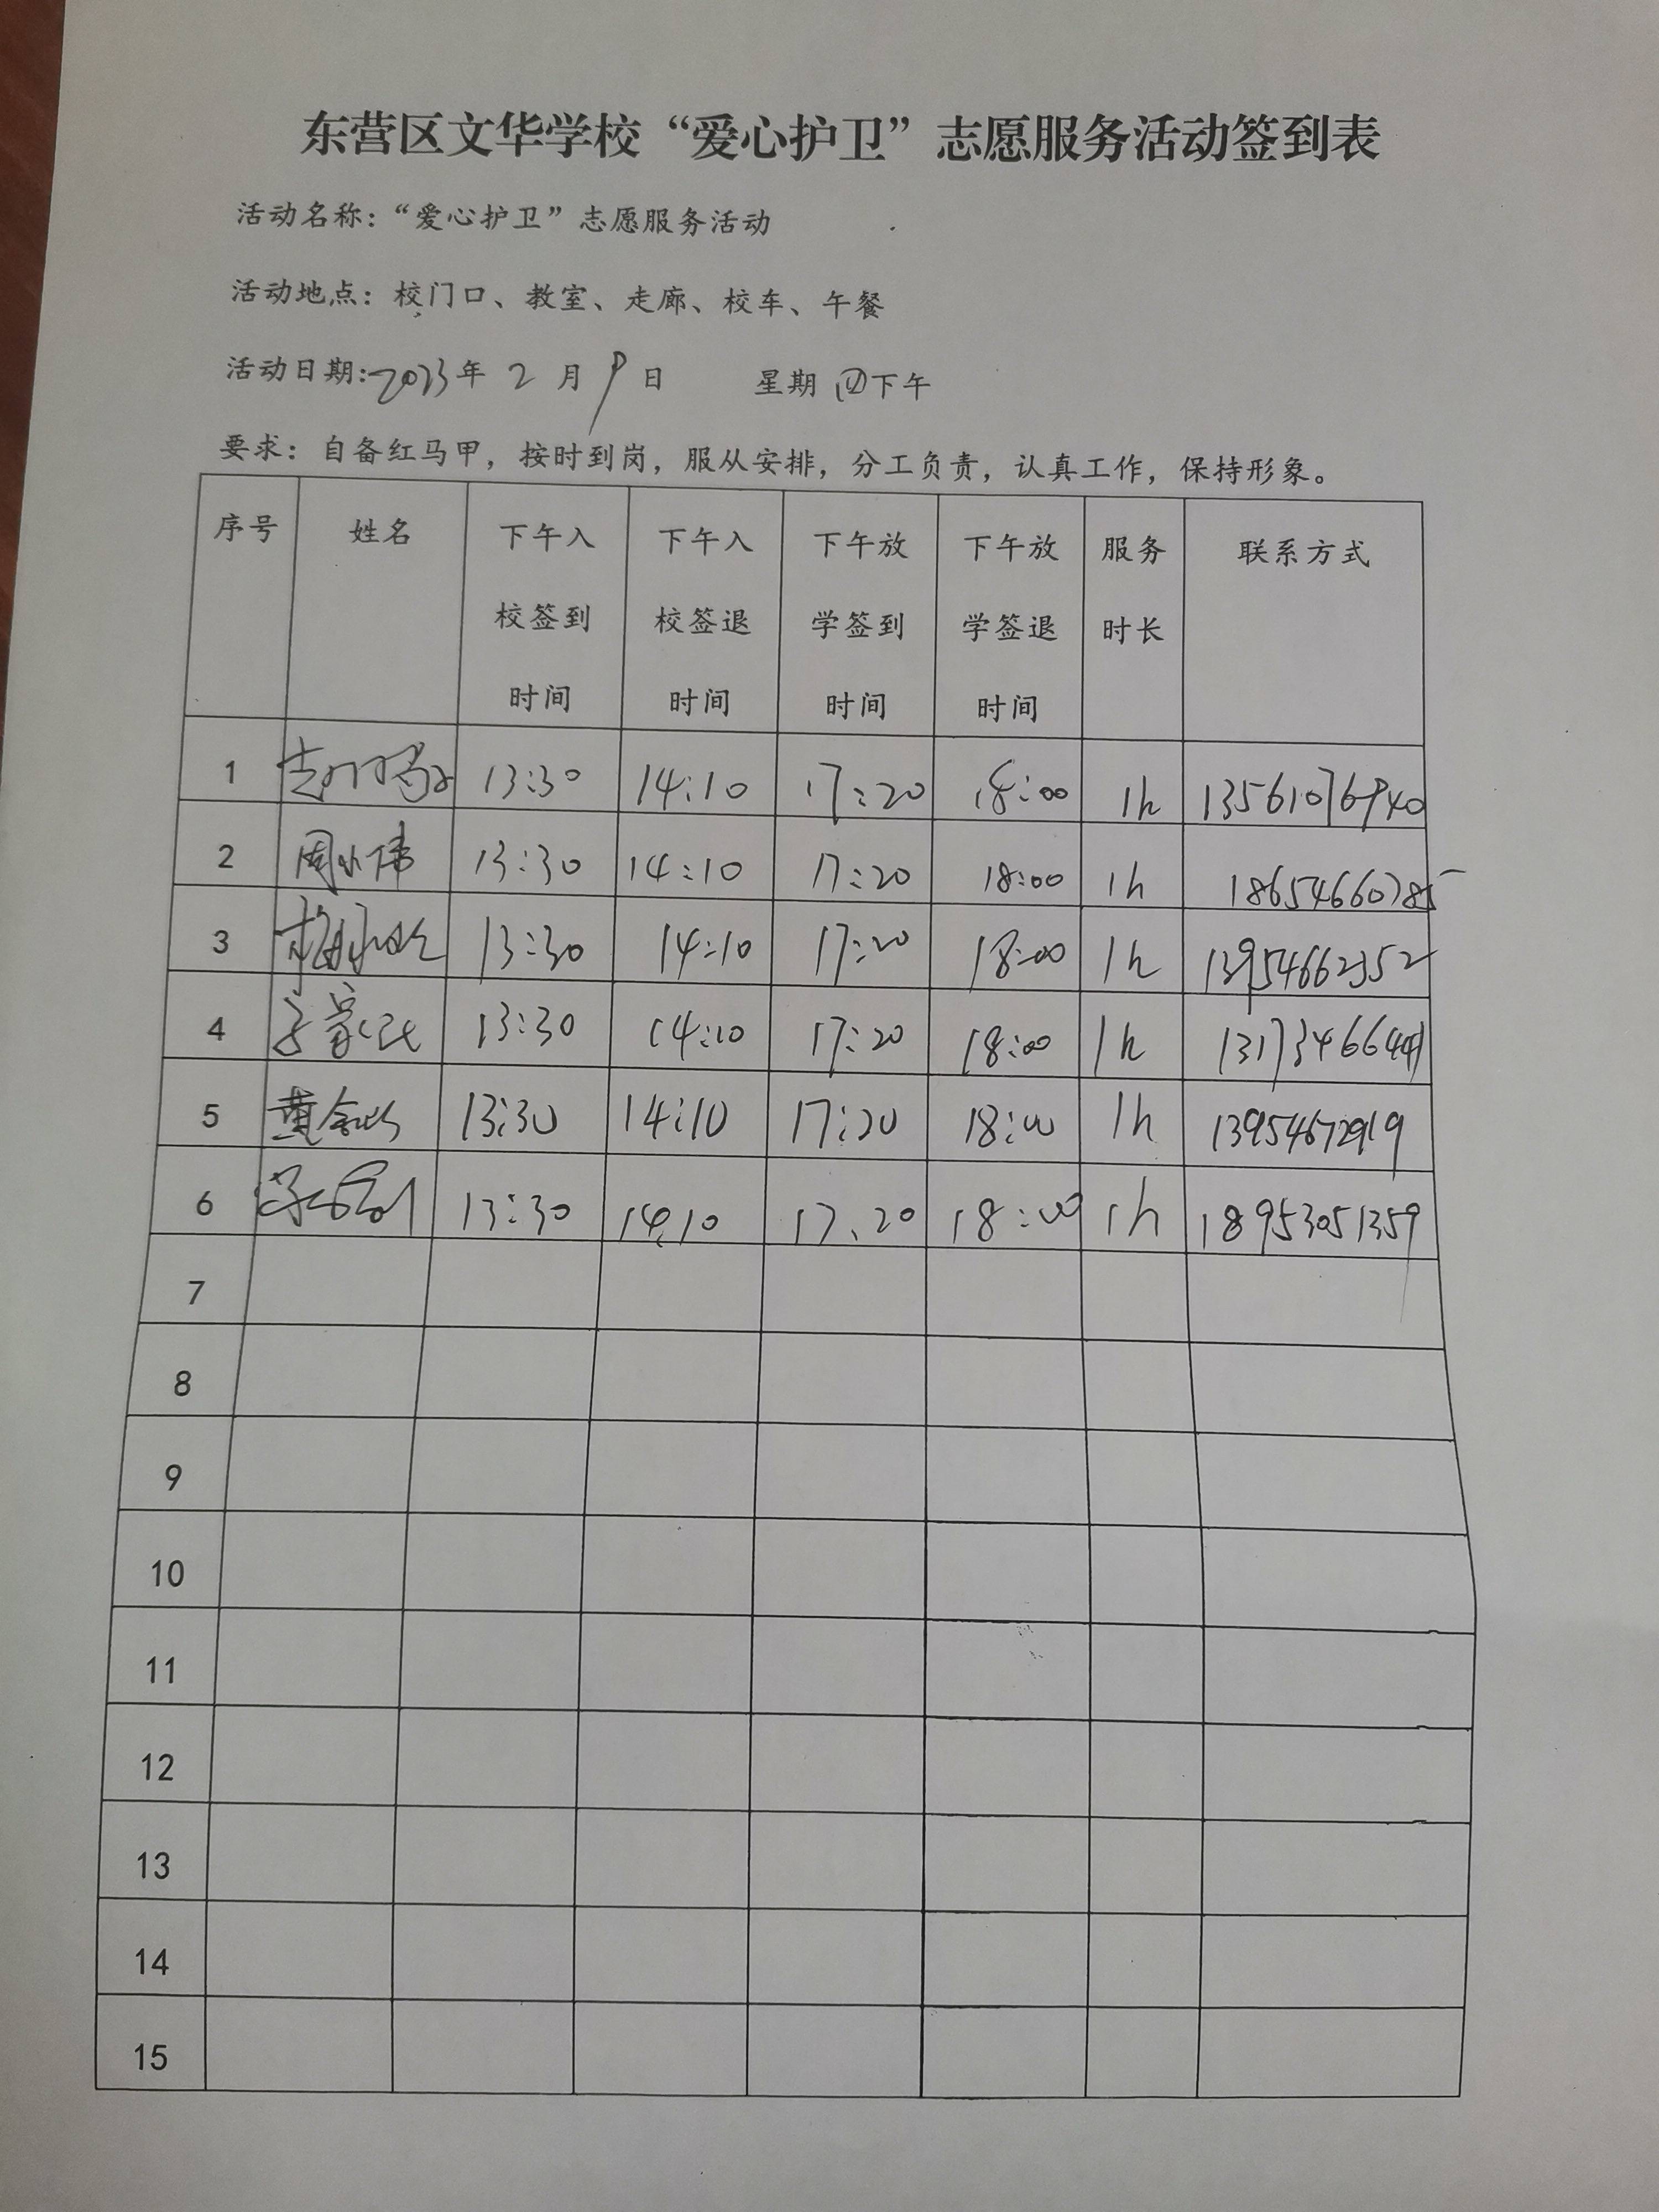 东营区文华学校“爱心护卫”志愿服务活动签到表
活动名称：“爱心护卫”志愿服务活动
活动地点：校门口、教室、走廊、校车、午餐
活动日期:2023年 2 月 9 日 星期 四下午
要求：自备红马甲，按时到岗，服从安排，分工负责，认真工作，保持形象。
序号 姓名 下午入校签到时间 下午入校签退时间 下午放学签到时间 下午放学签退时间 服务时长 联系方式
1 13:30 14:10 17:20 18:00 1h 13561076940
2 周小伟 13:30 14:10 17:20 18:00 1h 18654660785
3 13:30 14:10 17:20 18:00 1h 13954662352
4 13:30 14:10 17:20 18:00 1h
5 黄 13:30 14:10 17:20 18:00 1h 13954672919
6 13:30 14,10 17、20 18:00 1h 18953051359
7
8
9
10
11
12
13
14
15